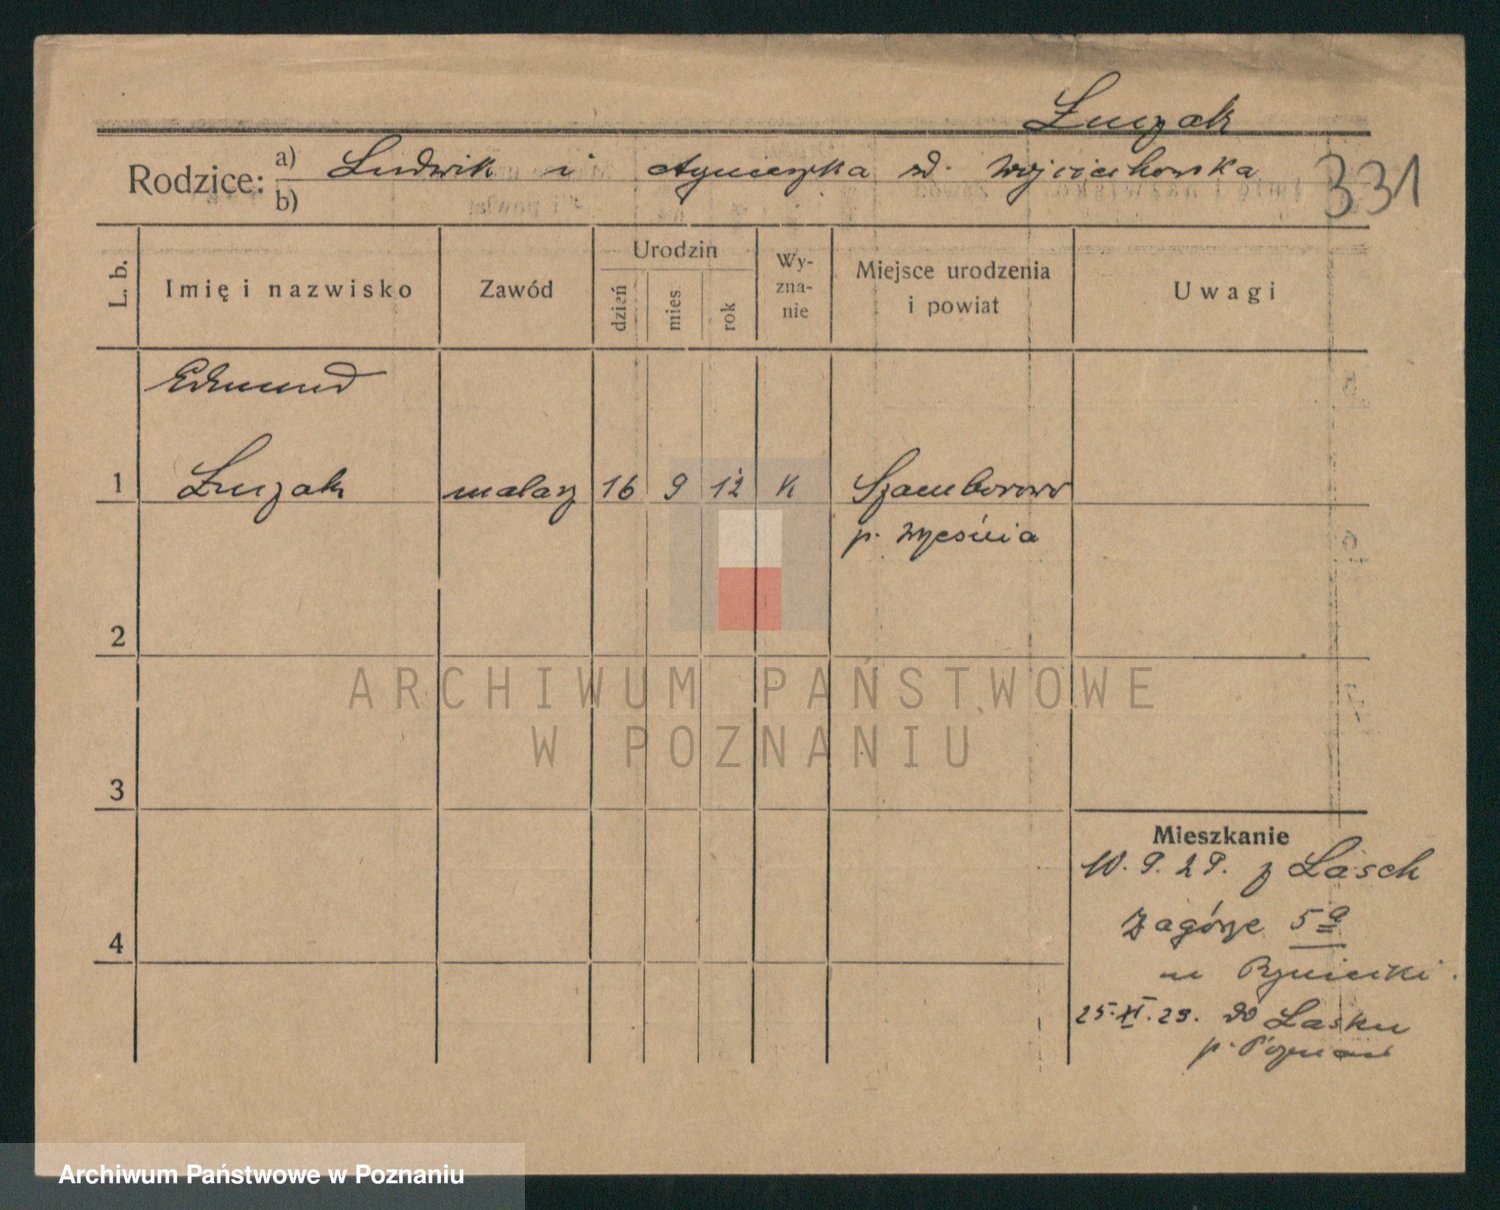 Łuczak
Rodzice: a) Ludwik i Agnieszka z d. Wojciechowska
b)
331
L. b.
Imię i nazwisko
Zawód
Urodzin
dzień
mies
rok
Wy-
zna-
nie
Miejsce urodzenia
i powiat
Uwagi
Edmund
1 Łuczak malarz 16 9 12 K Szamborowo
p. Września
2
3
4
Mieszkanie
10. 9. 29. z Lasek
Zagórze 5 a
u
25. XI. 29. do Lasku
p. Poznań
ARCHIWUM PAŃSTWOWE
W POZNANIU
Archiwum Państwowe w Poznaniu